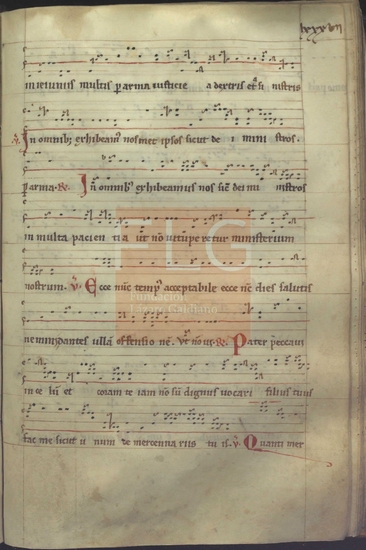 lxxxvii
in ieiuniis multis p arma iusticie a dextris et si nistris
V. In omnib; exhibeam' nos met ipsos sicut de i mini stros.
p arma. R. In omnib' exhibeamus nos sic dei mi nistros
in multa pacien tia ut nō uitupe retur ministerium
nostrum. V. Ecce nūc temp' acceptabile ecce nc̄ dies salutis
nemini dantes ullā offensio nē. Vt nō uit. R. Pater peccaui
in ce lū et corā te iam nō sū dignus uocari filius tuus
fac me sicut u num de mercenna riis tu is. V. Quanti mer
FLG
Fundación
Lázaro Galdiano